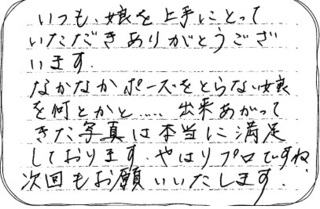 いつも、娘を上手にとって
いただきありがとうござ
います.
なかなかポーズをとらない娘
を何とかと……出来あがって
きた写真は本当に満足
しております.やはりプロですね
次回もお願いいたします.